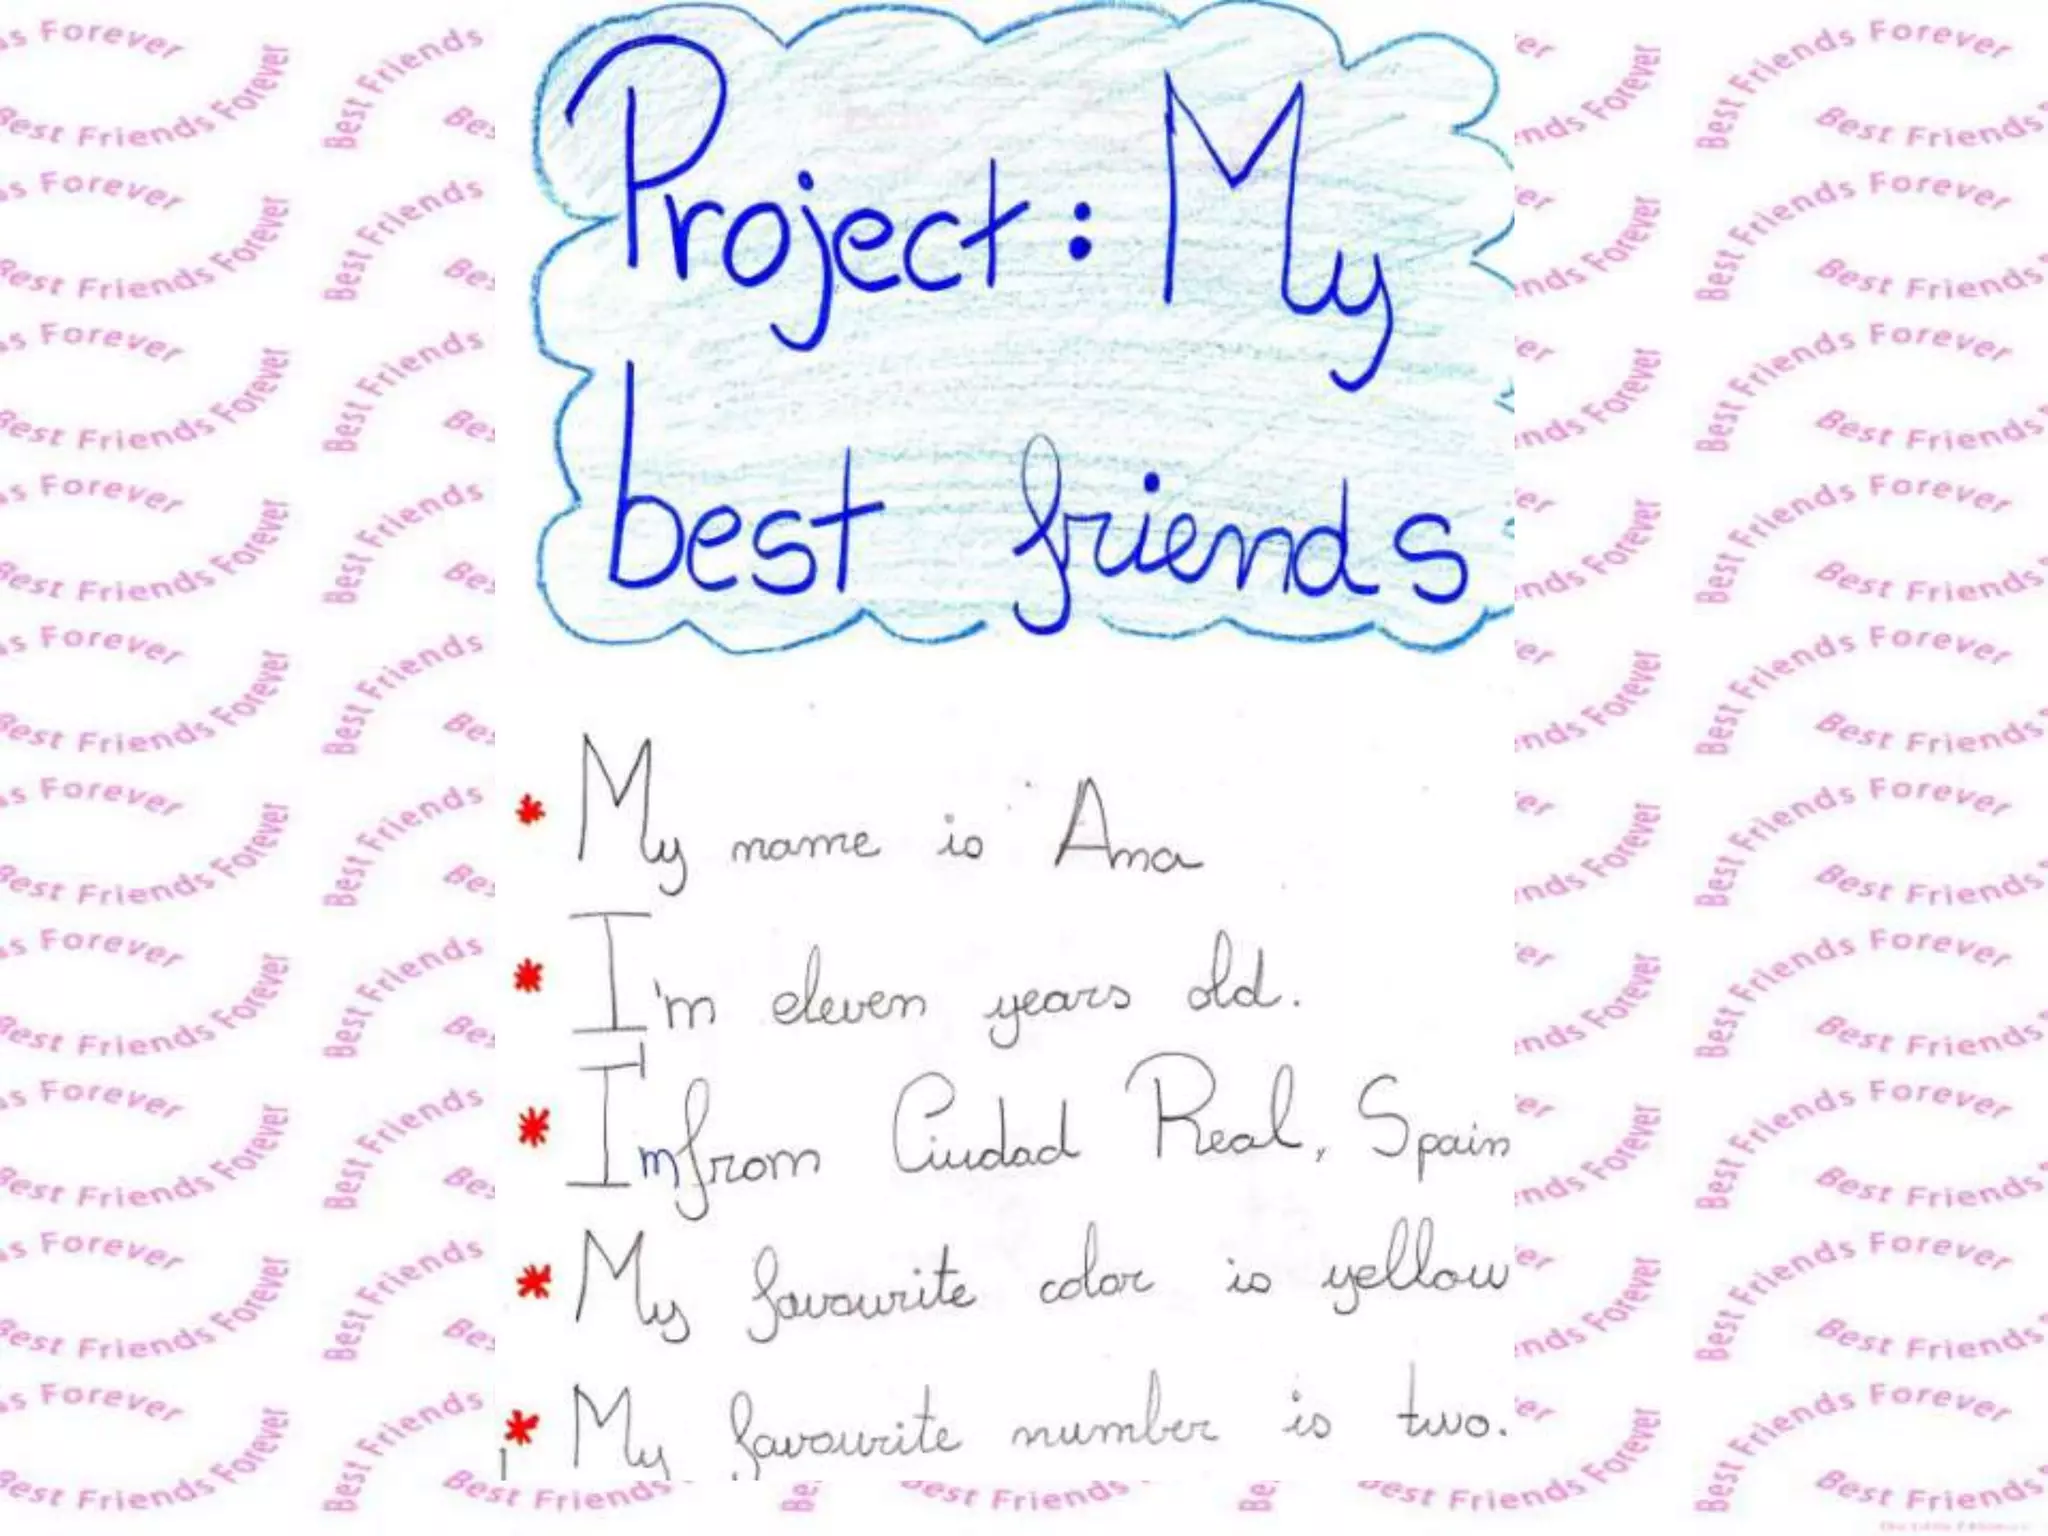 Project: My
best friends
* My name is Ana
* I'm eleven years old.
* I'm from Ciudad Real, Spain
* My favourite color is yellow
* My favourite number is two.
Best Friends Forever